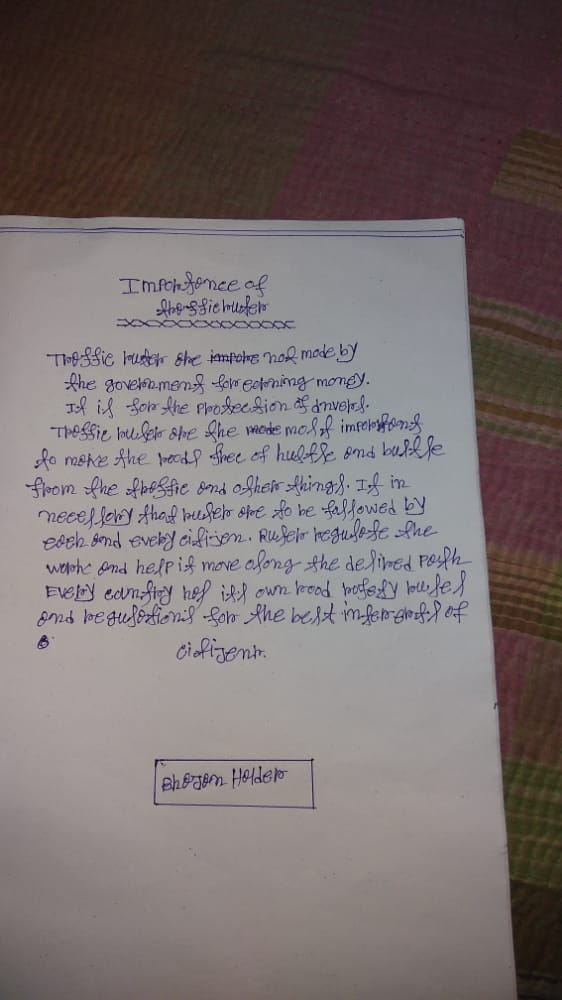 Importance of
traffic rules
Traffic rules are impore not made by
the government for earning money.
It is for the protection of drivers.
Traffic rules are the made most important
to make the roads free of hustle and bustle
from the traffic and other things. It in
necessory that rules are to be fallowed by
each and every citizen. Rules regulate the
work and help it move along the desired path
Every country has its own road rafety rules
and regulation's for the best interests of
citizens.
Bhojon Holder